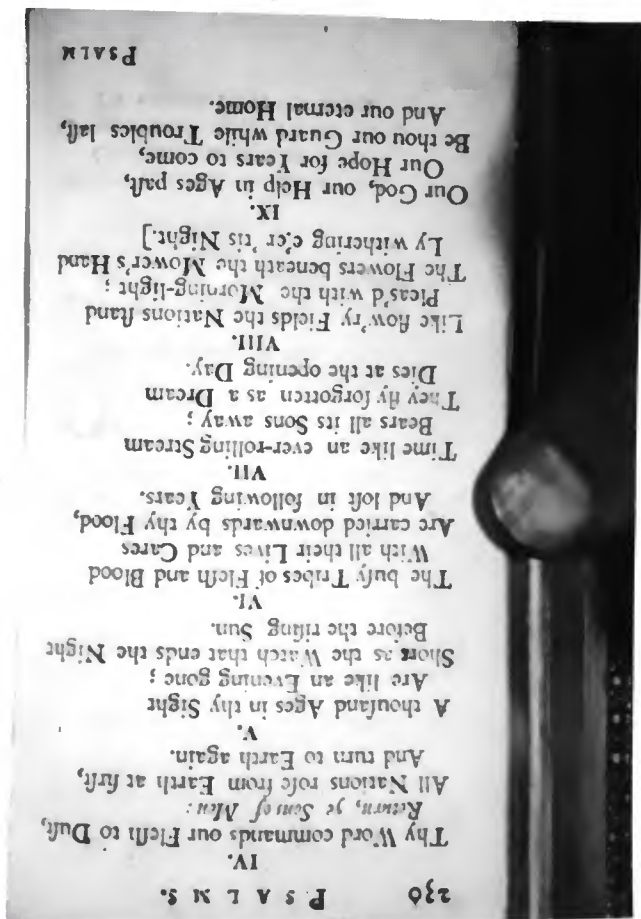 230 PSALMS.
IV.
Thy Word commands our Fleſh to Duſt,
Return, ye Sons of Men:
All Nations roſe from Earth at firſt,
And turn to Earth again.
V.
A thouſand Ages in thy Sight
Are like an Evening gone;
Short as the Watch that ends the Night
Before the riſing Sun.
VI.
The buſy Tribes of Fleſh and Blood
With all their Lives and Cares
Are carried downwards by thy Flood,
And loſt in following Years.
VII.
Time like an ever-rolling Stream
Bears all its Sons away;
They fly forgotten as a Dream
Dies at the opening Day.
VIII.
Like flow'ry Fields the Nations ſtand
Pleas'd with the Morning-light;
The Flowers beneath the Mower's Hand
Ly withering e'er 'tis Night.]
IX.
Our God, our Help in Ages paſt,
Our Hope for Years to come,
Be thou our Guard while Troubles laſt,
And our eternal Home.
PSALM